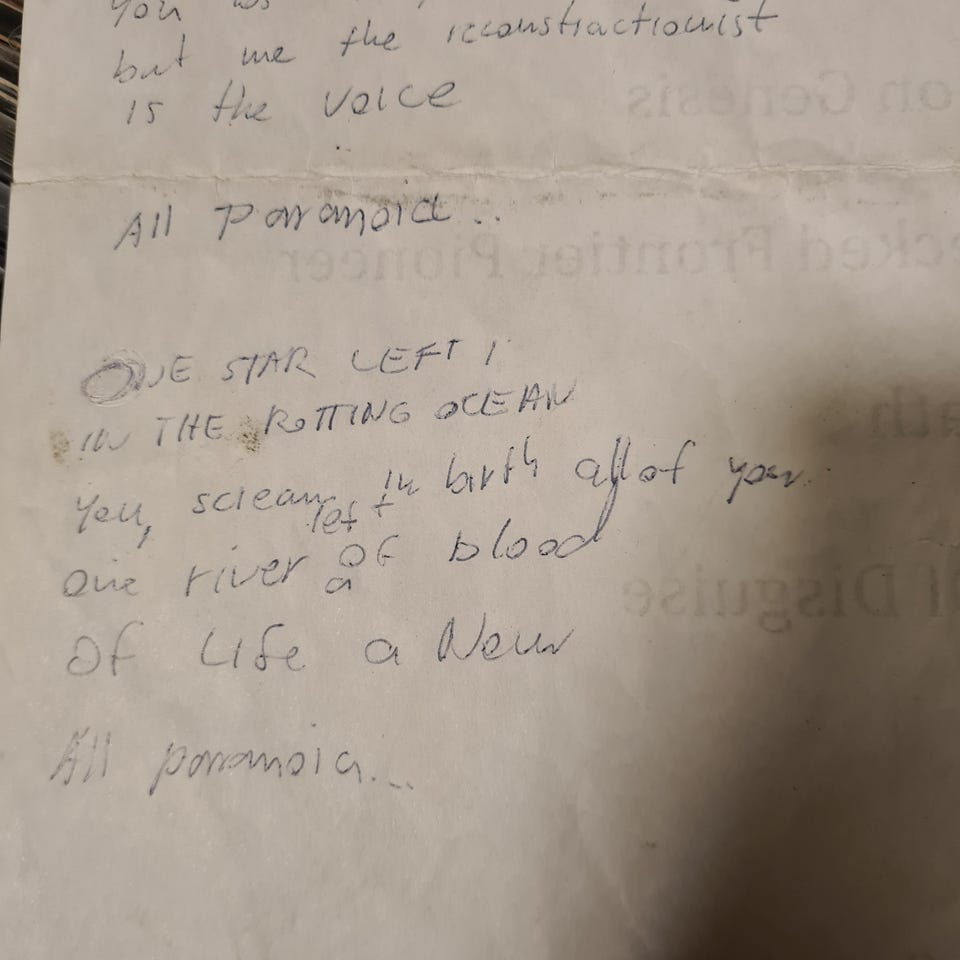 You
but me the reconstractionist
is the voice
All Paranoia..
ONE STAR LEFT
IN THE ROTTING OCEAN
You, scream in birth all of you
left
one river of blood
a
Of Life a New
All paranoia...
on Genesis
cked Frontier Pioneer
ath
f Disguise